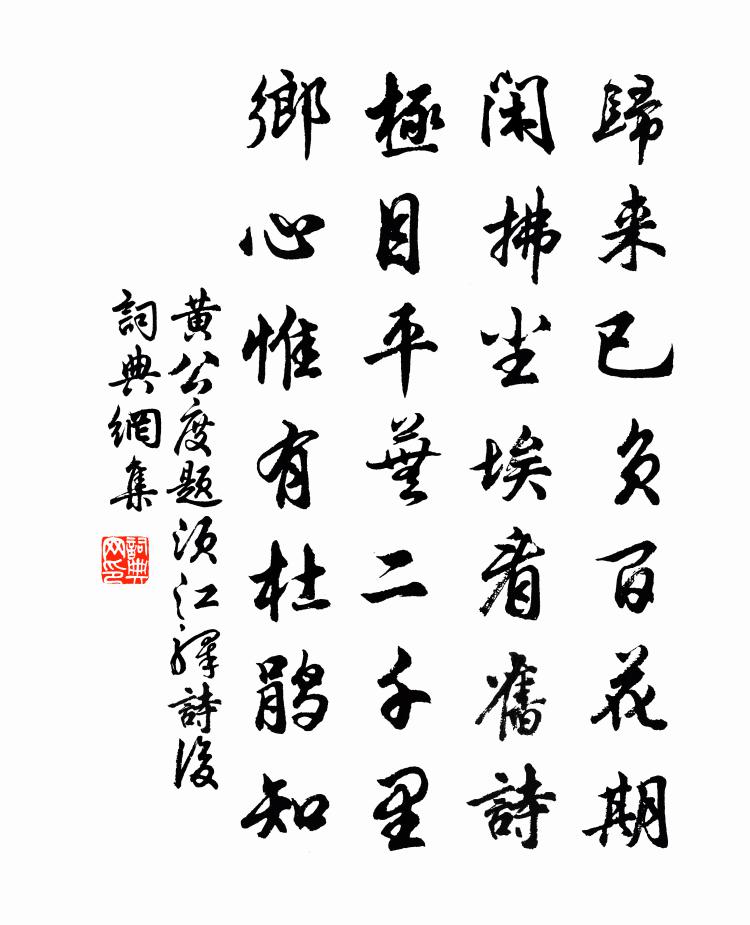 歸来已負百花期
閑拂尘埃看舊詩
極目平蕪二千里
鄉心惟有杜鵑知
黄公度題須江驛詩後
詞典網集
詞典网印